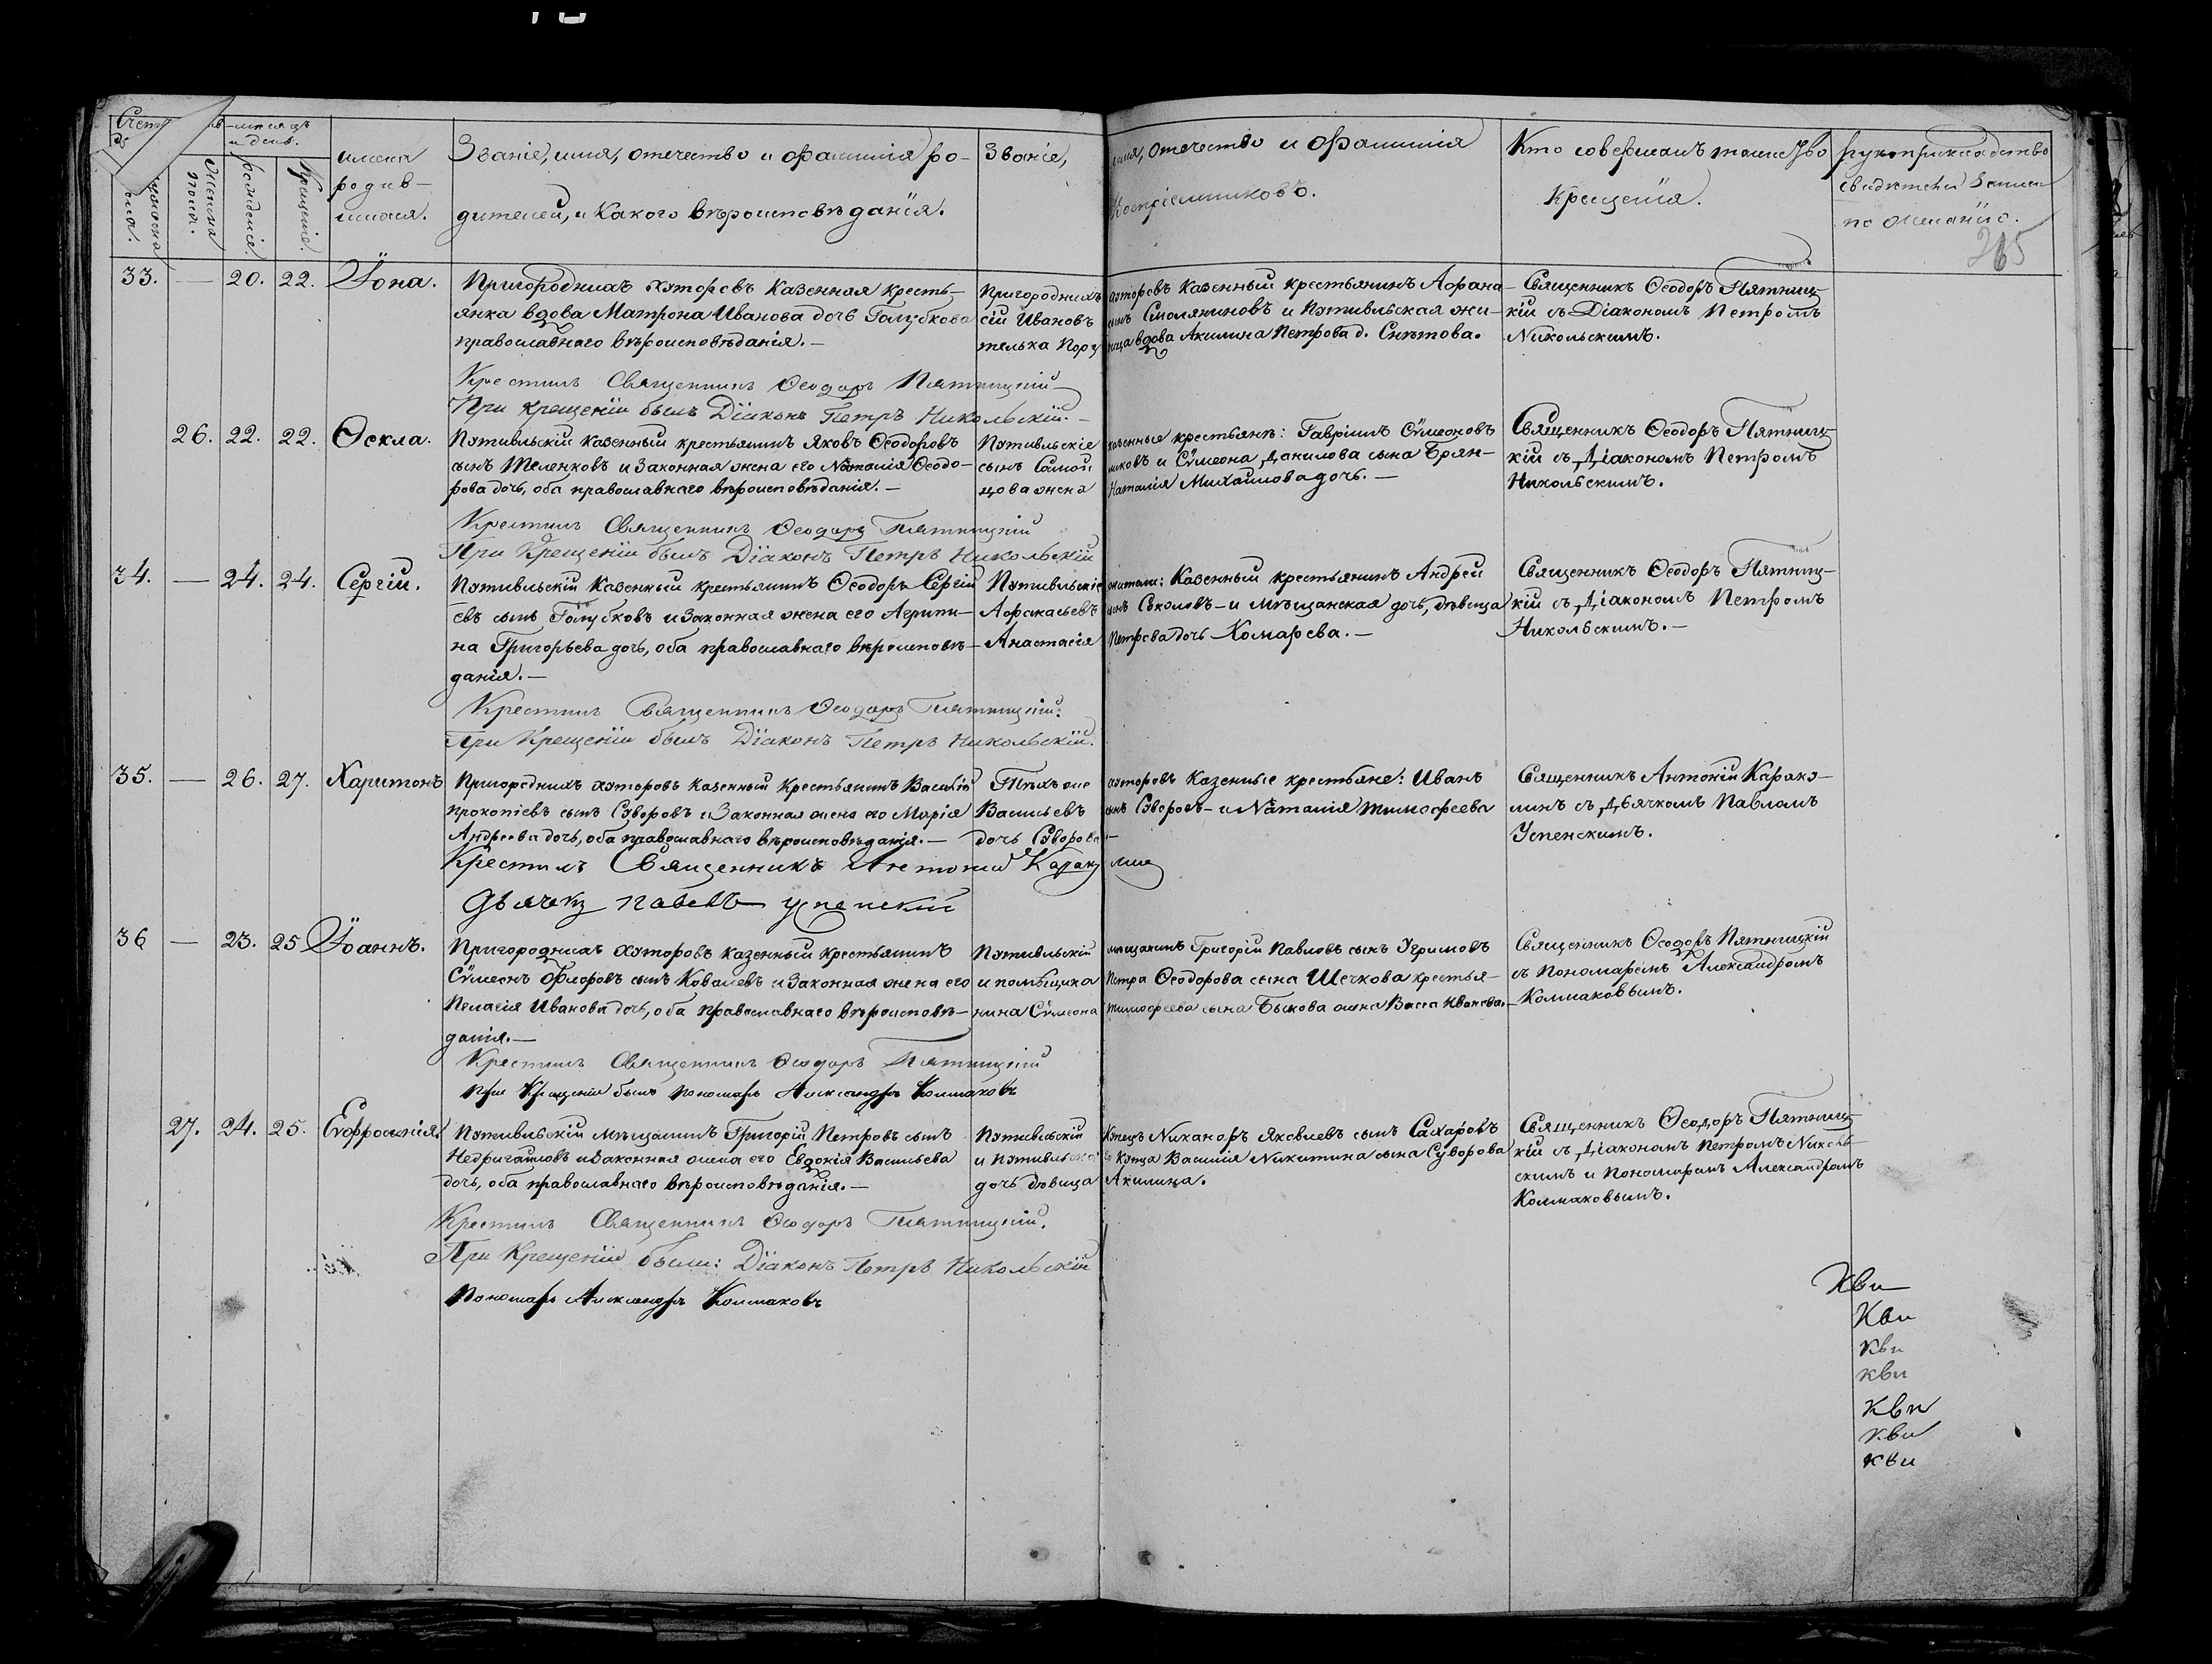 265
Счетъ мѣсяцъ
и день.
мужеска пола.
женска пола.
рожденія.
Крещенія.
имена
родив-
шихся.
Званіе, имя, отечество и фамилія ро-
дителей, и какого вѣроисповѣданія.
Званіе, имя, отечество и фамилія
Воспріемниковъ.
Кто совершалъ таинство
Крещенія.
рукоприкладство
свидѣтелей записи
по желанію.
33. — 20. 22. Іона.
Пригороднихъ хуторовъ казенная кресть-
янка вдова Матрона Иванова дочь Голубкова
православнаго вѣроисповѣданія. —
Пригороднихъ хуторовъ казенный крестьянинъ Афана-
сій Ивановъ сынъ Смоляниновъ и Путивльская жи-
телька вдова Акилина Петрова д. Снытова.
Священникъ Ѳеодоръ Пятниц-
кій съ Діакономъ Петромъ
Никольскимъ.
Крестилъ Священникъ Ѳеодоръ Пятницкій
При крещеніи былъ Діаконъ Петръ Никольскій. —
26. 22. 22. Ѳекла.
Путивльскій казенный крестьянинъ Яковъ Ѳеодоровъ
сынъ Теленковъ и законная жена его Наталія Ѳеодо-
рова дочь, оба православнаго вѣроисповѣданія. —
Путивльскіе казенные крестьяне: Гавріилъ Сѵмеоновъ
сынъ и Сѵмеона Данилова сына Брян-
цова жена Наталія Михайлова дочь. —
Священникъ Ѳеодоръ Пятниц-
кій съ Діакономъ Петромъ
Никольскимъ.
Крестилъ Священникъ Ѳеодоръ Пятницкій
При Крещеніи былъ Діаконъ Петръ Никольскій
34. — 24. 24. Сергій.
Путивльскій Казенный крестьянинъ Ѳеодоръ Сергіи-
евъ сынъ Голубковъ и законная жена его Агрипи-
на Григорьева дочь, оба православнаго вѣроисповѣ-
данія. —
Путивльскіе жители: Казенный крестьянинъ Андрей
Афанасьевъ сынъ Соколовъ — и мѣщанская дочь, дѣвица
Анастасія Петрова дочь Комарева. —
Священникъ Ѳеодоръ Пятниц-
кій съ Діакономъ Петромъ
Никольскимъ. —
Крестилъ Священникъ Ѳеодоръ Пятницкій.
При Крещеніи былъ Діаконъ Петръ Никольскій.
35. — 26. 27. Харитонъ
Пригороднихъ хуторовъ казенный крестьянинъ Василій
Прокопіевъ сынъ Суворовъ и Законная жена его Марія
Андреева дочь, оба православнаго вѣроисповѣданія. —
Тѣхъ же хуторовъ Казенные крестьяне: Иванъ
Васильевъ сынъ Суворовъ — и Наталія Тимофеева
дочь Суворова —
Священникъ Антоній Караку-
линъ съ Дьячкомъ Павломъ
Успенскимъ.
Крестилъ Священникъ Антоній Каракулин
Дьячекъ Павелъ Успенскій
36 — 23. 25 Іоаннъ.
Пригороднихъ хуторовъ казенный крестьянинъ
Сѵмеонъ Флоровъ сынъ Ковалевъ и Законная жена его
Пелагія Иванова дочь, оба православнаго вѣроисповѣ-
данія. —
Путивльскій мѣщанинъ Григорій Павловъ сынъ Угримовъ
и помѣщика Петра Ѳеодорова сына Шечкова крестья-
нина Сѵмеона Тимофеева сына Быкова жена Васса Иванова. —
Священникъ Ѳеодоръ Пятницкій
съ Пономаремъ Александромъ
Колмаковымъ.
Крестилъ Священникъ Ѳеодоръ Пятницкій
При Крещеніи былъ Пономарь Александръ Колмаковъ
27. 24. 25. Евфросинія.
Путивльскій мѣщанинъ Григорій Петровъ сынъ
Недригайловъ и законная жена его Евдокія Васильева
дочь, оба православнаго вѣроисповѣданія. —
Путивльскій Купецъ Никаноръ Яковлевъ сынъ Сахаровъ
и Путивльскаго купца Василія Никитина сына Суворова
дочь дѣвица Акилина.
Священникъ Ѳеодоръ Пятниц-
кій съ Діакономъ Петромъ Николь-
скимъ и Пономаремъ Александромъ
Колмаковымъ.
Крестилъ Священникъ Ѳеодоръ Пятницкій.
При Крещеніи были: Діаконъ Петръ Никольскій
Пономарь Александръ Колмаковъ
Кви
Кви
Кви
кви
Кви
кви
кви